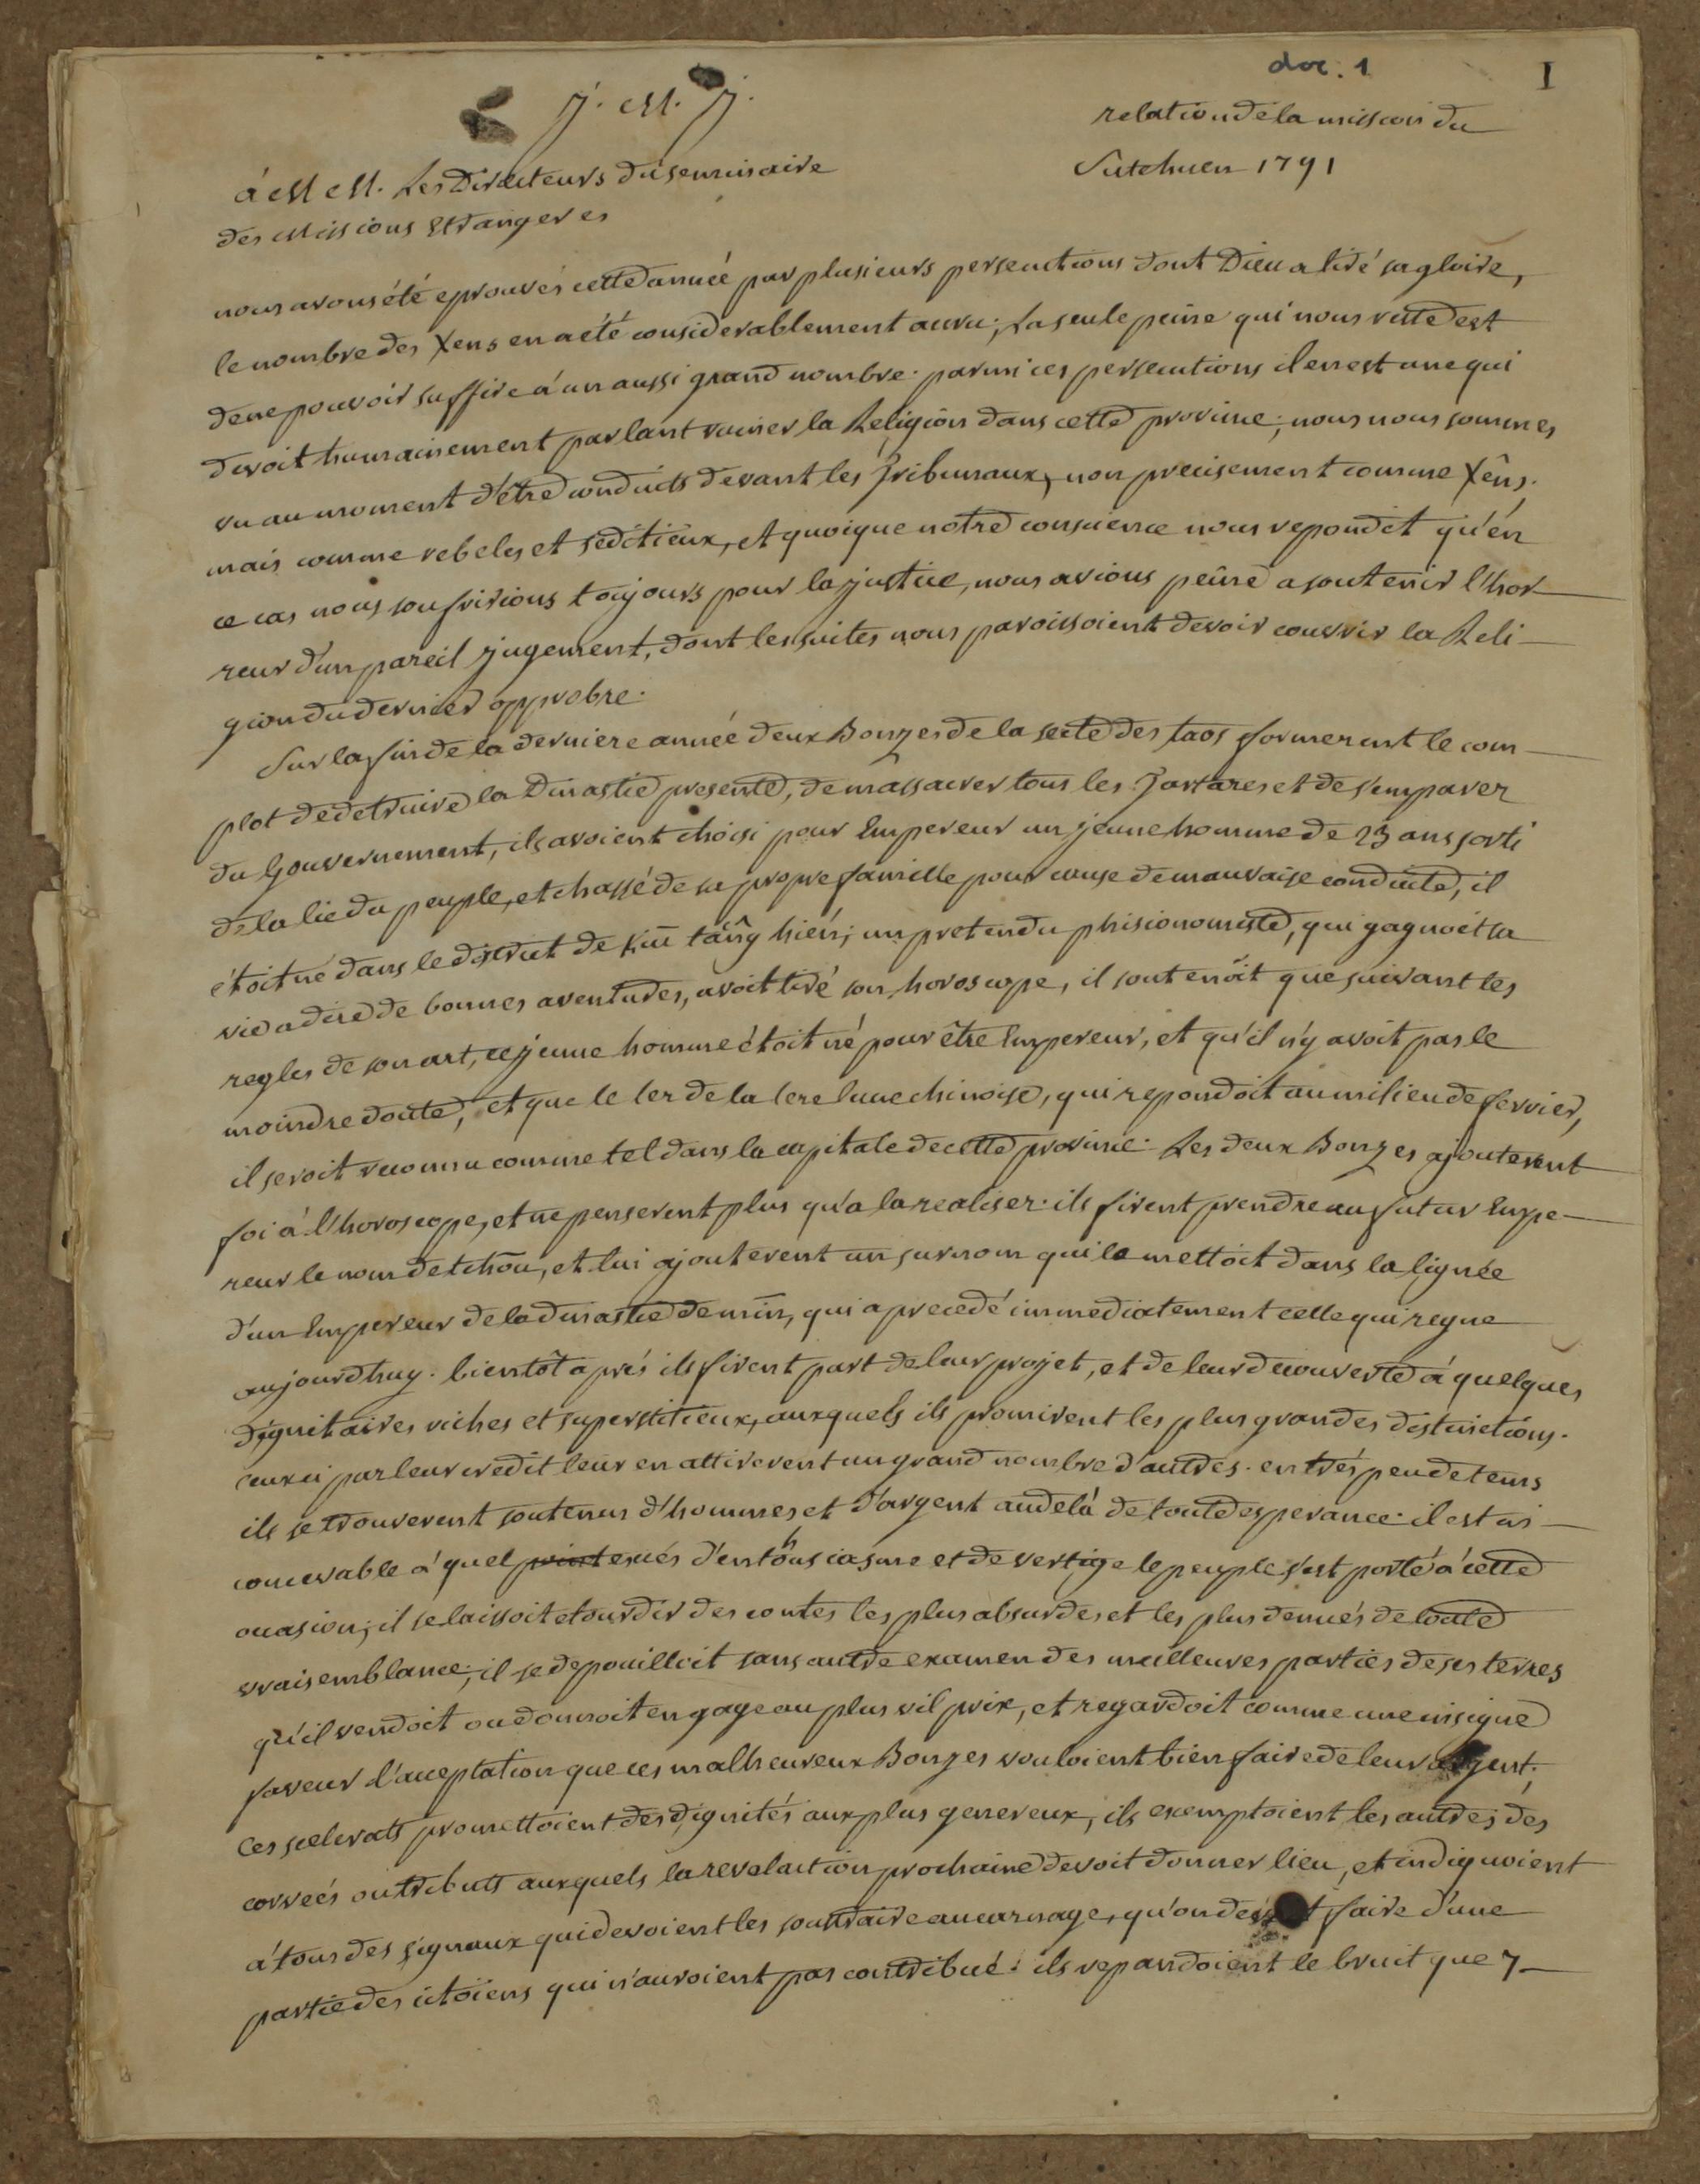 doc. 1
I
j. M. j.
relation de la mission du
Sutchuen 1791
à M M. Les Directeurs du seminaire
des Missions Etrangeres
nous avons été eprouvés cette année par plusieurs persecutions dont Dieu a tiré sa gloire,
le nombre des Xens en a été considerablement accru; La seule peine qui nous reste est
de ne pouvoir suffire à un aussi grand nombre. parmi ces persecutions il en est une qui
devoit humainement parlant ruiner la Religion dans cette province; nous nous sommes
vu au moment d'être conduits devant les Tribunaux, non precisement comme Xêns.
mais comme rebeles et seditieux, et quoique notre conscience nous repondit qu'en
ce cas nous soufririons toujours pour la justice, nous avions peine a soutenir l'hor-
reur d'un pareil jugement, dont les suites nous paroissoient devoir couvrir la Reli-
gion du dernier opprobre.
Sur la fin de la derniere année deux Bonzes de la secte des taos formerent le com-
plot de detruire la Dinastie presente, de massacrer tous les Tartares et de s'emparer
du Gouvernement, ils avoient choisi pour Empereur un jeune homme de 23 ans sorti
de la lie du peuple, et chassé de sa propre famille pour cause de mauvaise conduite, il
étoit né dans le district de Kin tâng hién; un pretendu phisionomiste, qui gagnoit sa
vie a dire de bonnes aventures, avoit tiré son horoscope, il soutenoit que suivant les
regles de son art, ce jeune homme étoit né pour être Empereur, et qu'il n'y avoit pas le
moindre doute, et que le 1er de la 1ere lune chinoise, qui repondoit au milieu de fevrier,
il seroit reconnu comme tel dans la capitale de cette province. Les deux Bonzes ajouterent
foi à l'horoscope, et ne penserent plus qu'a la realiser. ils firent prendre au futur Empe-
reur le nom de tchōu, et lui ajouterent un surnom qui le mettoit dans la lignée
d'un Empereur de la dinastie de min, qui a precedé immediatement celle qui regne
aujourdhuy. bientôt aprés ils firent part de leur projet, et de leur decouverte à quelques
dignitaires riches et superstitieux, auxquels ils promirent les plus grandes distinctions.
ceux ci par leur credit leur en attirerent un grand nombre d'autres. en trés peu de tems
ils se trouverent soutenus d'hommes et d'argent audelà de toute esperance. il est in-
concevable à quel excés d'enthousiasme et de vertige le peuple s'est porté à cette
occasion; il se laissoit etourdir des contes les plus absurdes et les plus denués de toute
vraisemblance; il se depouilloit sans autre examen des meilleures parties de ses terres
qu'il vendoit ou donnoit en gage au plus vil prix, et regardoit comme une insigne
faveur l'acceptation que ces malheureux Bonzes vouloient bien faire de leur argent;
Ces scelerats promettoient des dignités aux plus genereux, ils exemptoient les autres des
corveés ou tributs auxquels la revolution prochaine devoit donner lieu, et indiquoient
à tous des signaux qui devoient les soustraire au carnage, qu'on devoit faire d'une
partie des citoïens qui n'auroient pas contribué. ils repandoient le bruit que 7-